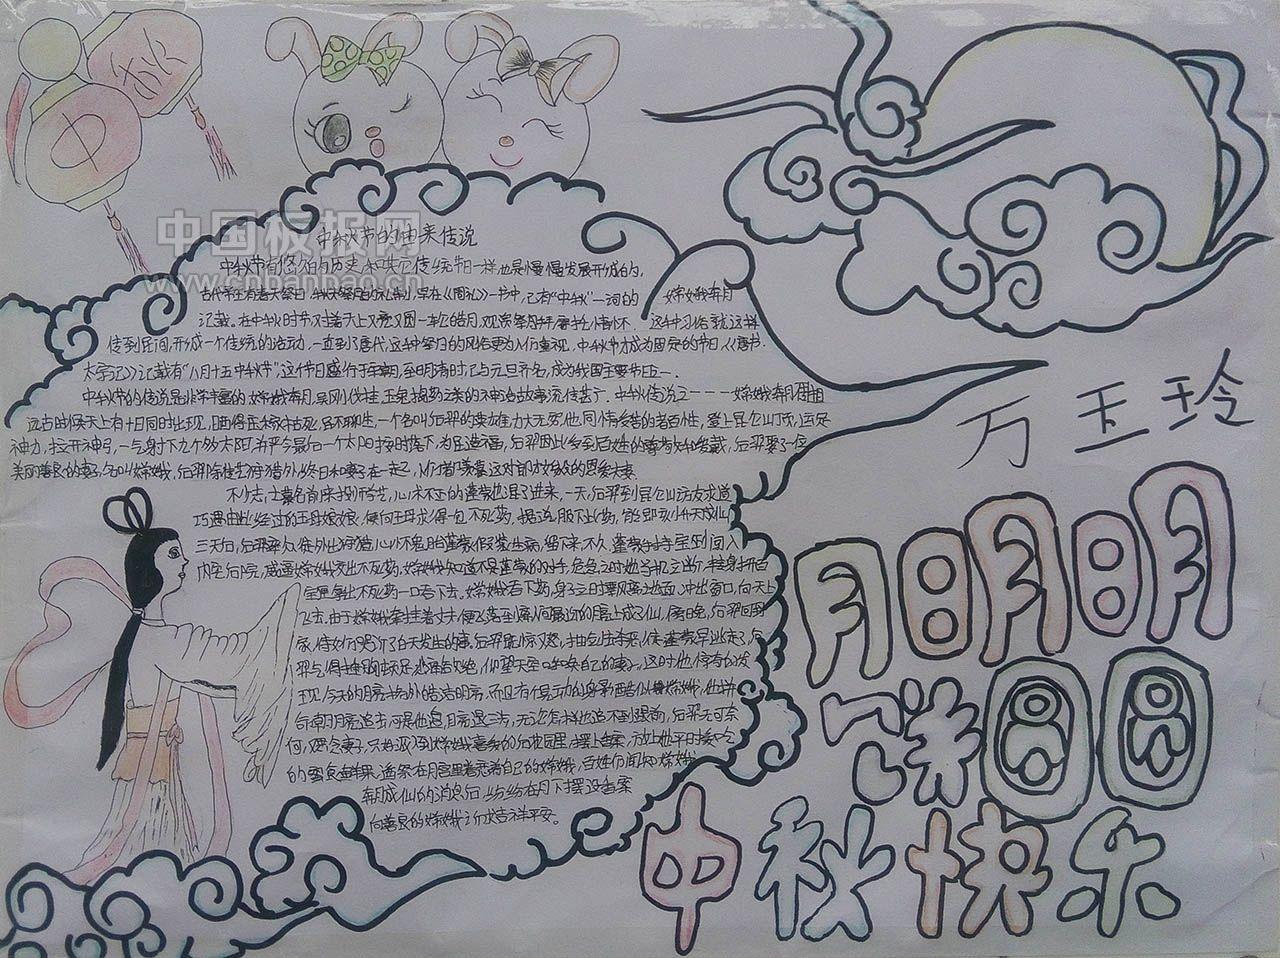 中秋
中国板报网
www.cnbanbao.cn
中秋节的由来传说
中秋节有悠久的历史,和其它传统节日一样也是慢慢发展形成的,
古代帝王有春天祭日,秋天祭月的礼制,早在《周礼》一书中,已有“中秋”一词的
嫦娥奔月
记载。在中秋时节,对着天上又亮又圆一轮皓月,观赏祭拜,寄托情怀. 这种习俗就这样
传到民间,形成一个传统的活动,一直到了唐代,这种祭月的风俗更为人们重视,中秋节才成为固定的节日,《唐书·
太宗记》记载有“八月十五中秋节”,这个节日盛行于宋朝,至明清时,已与元旦齐名,成为我国主要节日之一.
中秋节的传说是非常丰富的,嫦娥奔月,吴刚伐桂,玉兔捣药之类的神话故事流传甚广. 中秋传说之一----嫦娥奔月,相
远古时候天上有十日同时出现,晒得庄稼枯死,民不聊生,一个名叫后羿的英雄力大无穷,他同情受苦的老百性,登上昆仑山顶,运足
神力,拉开神弓,一气射下九个多太阳,并严令最后一个太阳按时落下,为民造福,后羿因此受到百姓的尊敬和爱戴,后羿娶了一位
美丽善良的妻子,名叫嫦娥,后羿除传艺狩猎外,终日和妻子在一起,人们都羡慕这对郎才女貌的恩爱夫妻.
不少志士慕名前来投师学艺,心术不正的蓬蒙也混了进来,一天,后羿到昆仑山访友求道
巧遇由此经过的王母娘娘,便向王母求得一包不死药,据说,服下此药,能即刻升天成仙
三天后,后羿率众徒外出狩猎,心怀鬼胎蓬蒙假装生病,留下来,不久,蓬蒙手持宝剑闯入
内宅后院,威逼嫦娥交出不死药,嫦娥知道不是蓬蒙的对手,危急之时她当机立断,转身打开百
宝匣,拿出不死药一口吞下去,嫦娥吞下药,身子立时飘离地面,冲出窗口,向天上
飞去.由于嫦娥牵挂着丈夫,便飞落到离人间最近的月亮上成了仙,傍晚,后羿回到
家,侍女们哭诉了白天发生的事,后羿既惊又怒,抽剑去杀恶徒,蓬蒙早逃走了,后
羿气得捶胸顿足悲痛欲绝,仰望天空呼唤自己的妻子,这时他惊奇的发
现,今天的月亮格外的皎洁明亮,而且有个晃动的身影酷似嫦娥,他拼
命朝月亮追去,可是他追月亮退三步,无论怎样也追不到跟前,后羿无可奈
何,思念妻子,只好派人到嫦娥喜爱的后花园里,摆上香案,放上她平时爱吃
的蜜食鲜果,遥祭在月宫里眷恋着自己的嫦娥,百姓们闻知嫦娥
奔月成仙的消息后,纷纷在月下摆设香案
向善良的嫦娥祈求吉祥平安。
万玉玲
月明月明
饼圆圆
中秋快乐